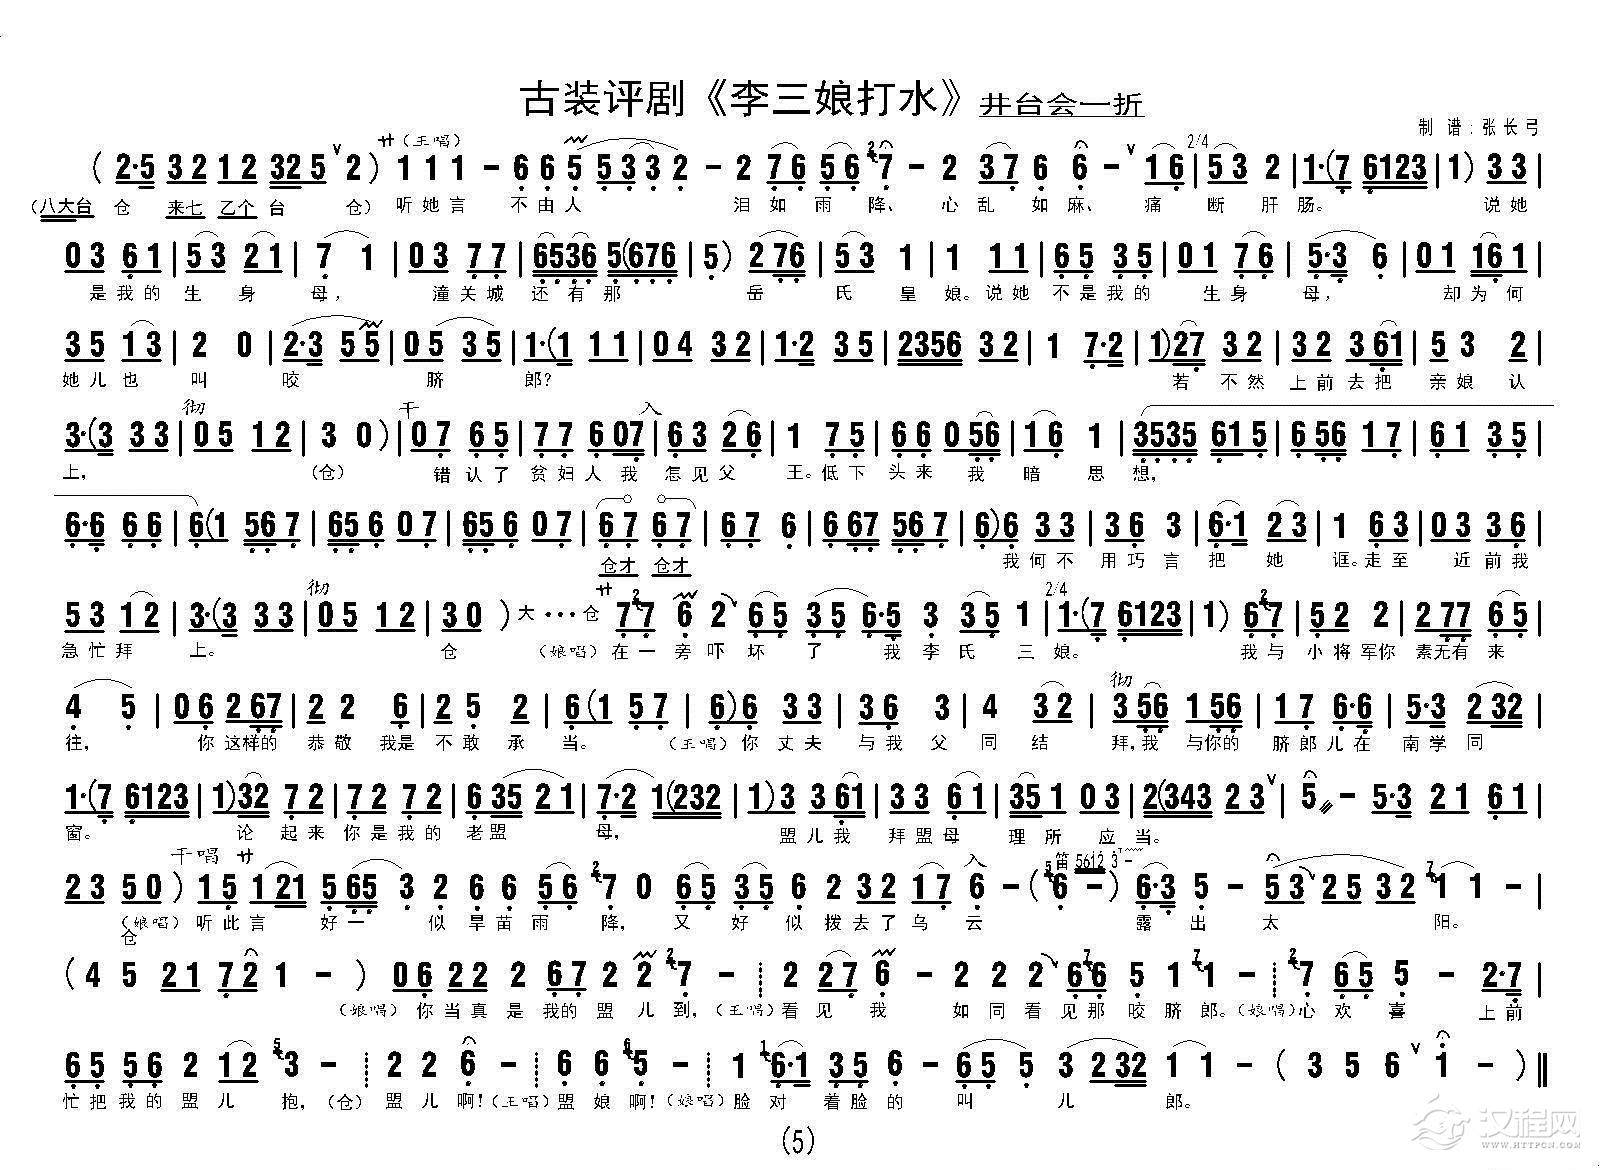 古装评剧《李三娘打水》井台会一折
制 谱:张长弓
サ(王唱) 2/4
(2·5 32 12 325 2) 111 - 665 5332 - 2 76 56 7 - 2 376 6 - 16 | 53 2 | 1·(7 6123 | 1) 33 |
(八大台 仓 来七 乙个 台 仓) 听她言 不由人 泪如雨降、心乱如麻、痛断肝肠。 说她
03 61 | 53 21 | 7 1 | 03 77 | 6536 5(676 | 5) 276 | 53 1 | 1 11 | 65 35 | 01 76 | 5·3 6 | 01 161 |
是我的生身母, 潼关城还有那 岳氏皇娘。说她不是我的生身母, 却为何
35 13 | 2 0 | 2·3 55 | 05 35 | 1·(1 11 | 04 32 | 1·2 35 | 2356 32 | 1 7·2 | 1)27 32 | 32 361 | 53 2 |
她儿也叫咬 脐 郎? 若不然上前去把亲娘认
彻 干 入
3·(3 33 | 05 12 | 3 0) | 07 65 | 77 607 | 63 26 | 1 75 | 66 056 | 16 1 | 3535 615 | 656 17 | 61 35 |
上, (仓) 错认了贫妇人我怎见父王。低下头来我暗思想,
6·6 66 | 6(1 567 | 656 07 | 656 07 | 67 67 | 67 6 | 667 567 | 6)6 33 | 36 3 | 6·1 23 | 1 63 | 03 36 |
仓才 仓才 我何不用巧言把她诓。走至近前我
彻 サ 2/4
53 12 | 3·(3 33 | 05 12 | 30 ) 大···仓 77 6 2 65 35 6·5 3 35 1 | 1·(7 6123 | 1) 67 | 52 2 | 277 65 |
急忙拜上。 仓 (娘唱)在一旁吓坏了我李氏三娘。 我与小将军你素无有来
彻
4 5 | 06 267 | 22 6 | 25 2 | 6(1 57 | 6)6 33 | 36 3 | 4 32 | 356 156 | 67 6·6 | 5·3 232 |
往, 你这样的恭敬我是不敢承当。 (王唱)你丈夫与我父同结拜,我与你的脐郎儿在南学同
1·(7 6123 | 1)32 72 | 72 72 | 635 21 | 7·2 1(232 | 1)3 361 | 33 61 | 351 03 | 2(343 23 | 5 - 5·3 21 61
窗。 论起来你是我的老盟母, 盟儿我拜盟母理所应当。
干唱 サ 入 笛 5612 3 -
23 50 ) 15 121 565 3 2 6 6 56 7 0 65 35 6 32 17 6 - ( 6 - ) 6·3 5 - 53 25 32 1 1 - |
(娘唱)听此言好一似旱苗雨降,又好似拨去了乌云 露出太阳。
仓
( 4 5 21 72 1 - ) 06 22 2 67 2 2 7 - ┊ 2 27 6 - 2 2 2 66 5 1 1 - ┊ 7 65 5 - 2·7 |
(娘唱)你当真是我的盟儿到,(王唱)看见我如同看见那咬脐郎。(娘唱)心欢喜上前
65 56 2 12 3 - ┊ 2 2 6 - ┊ 6 6 5 - ┊ 1 6·1 35 6 - 65 5 3 232 11 - ( 3 5 6 1 - ) ‖
忙把我的盟儿抱,(仓)盟儿啊!(王唱)盟娘啊!(娘唱)脸对着脸的叫儿郎。
(5)
汉程网
WWW.HTTPCN.COM